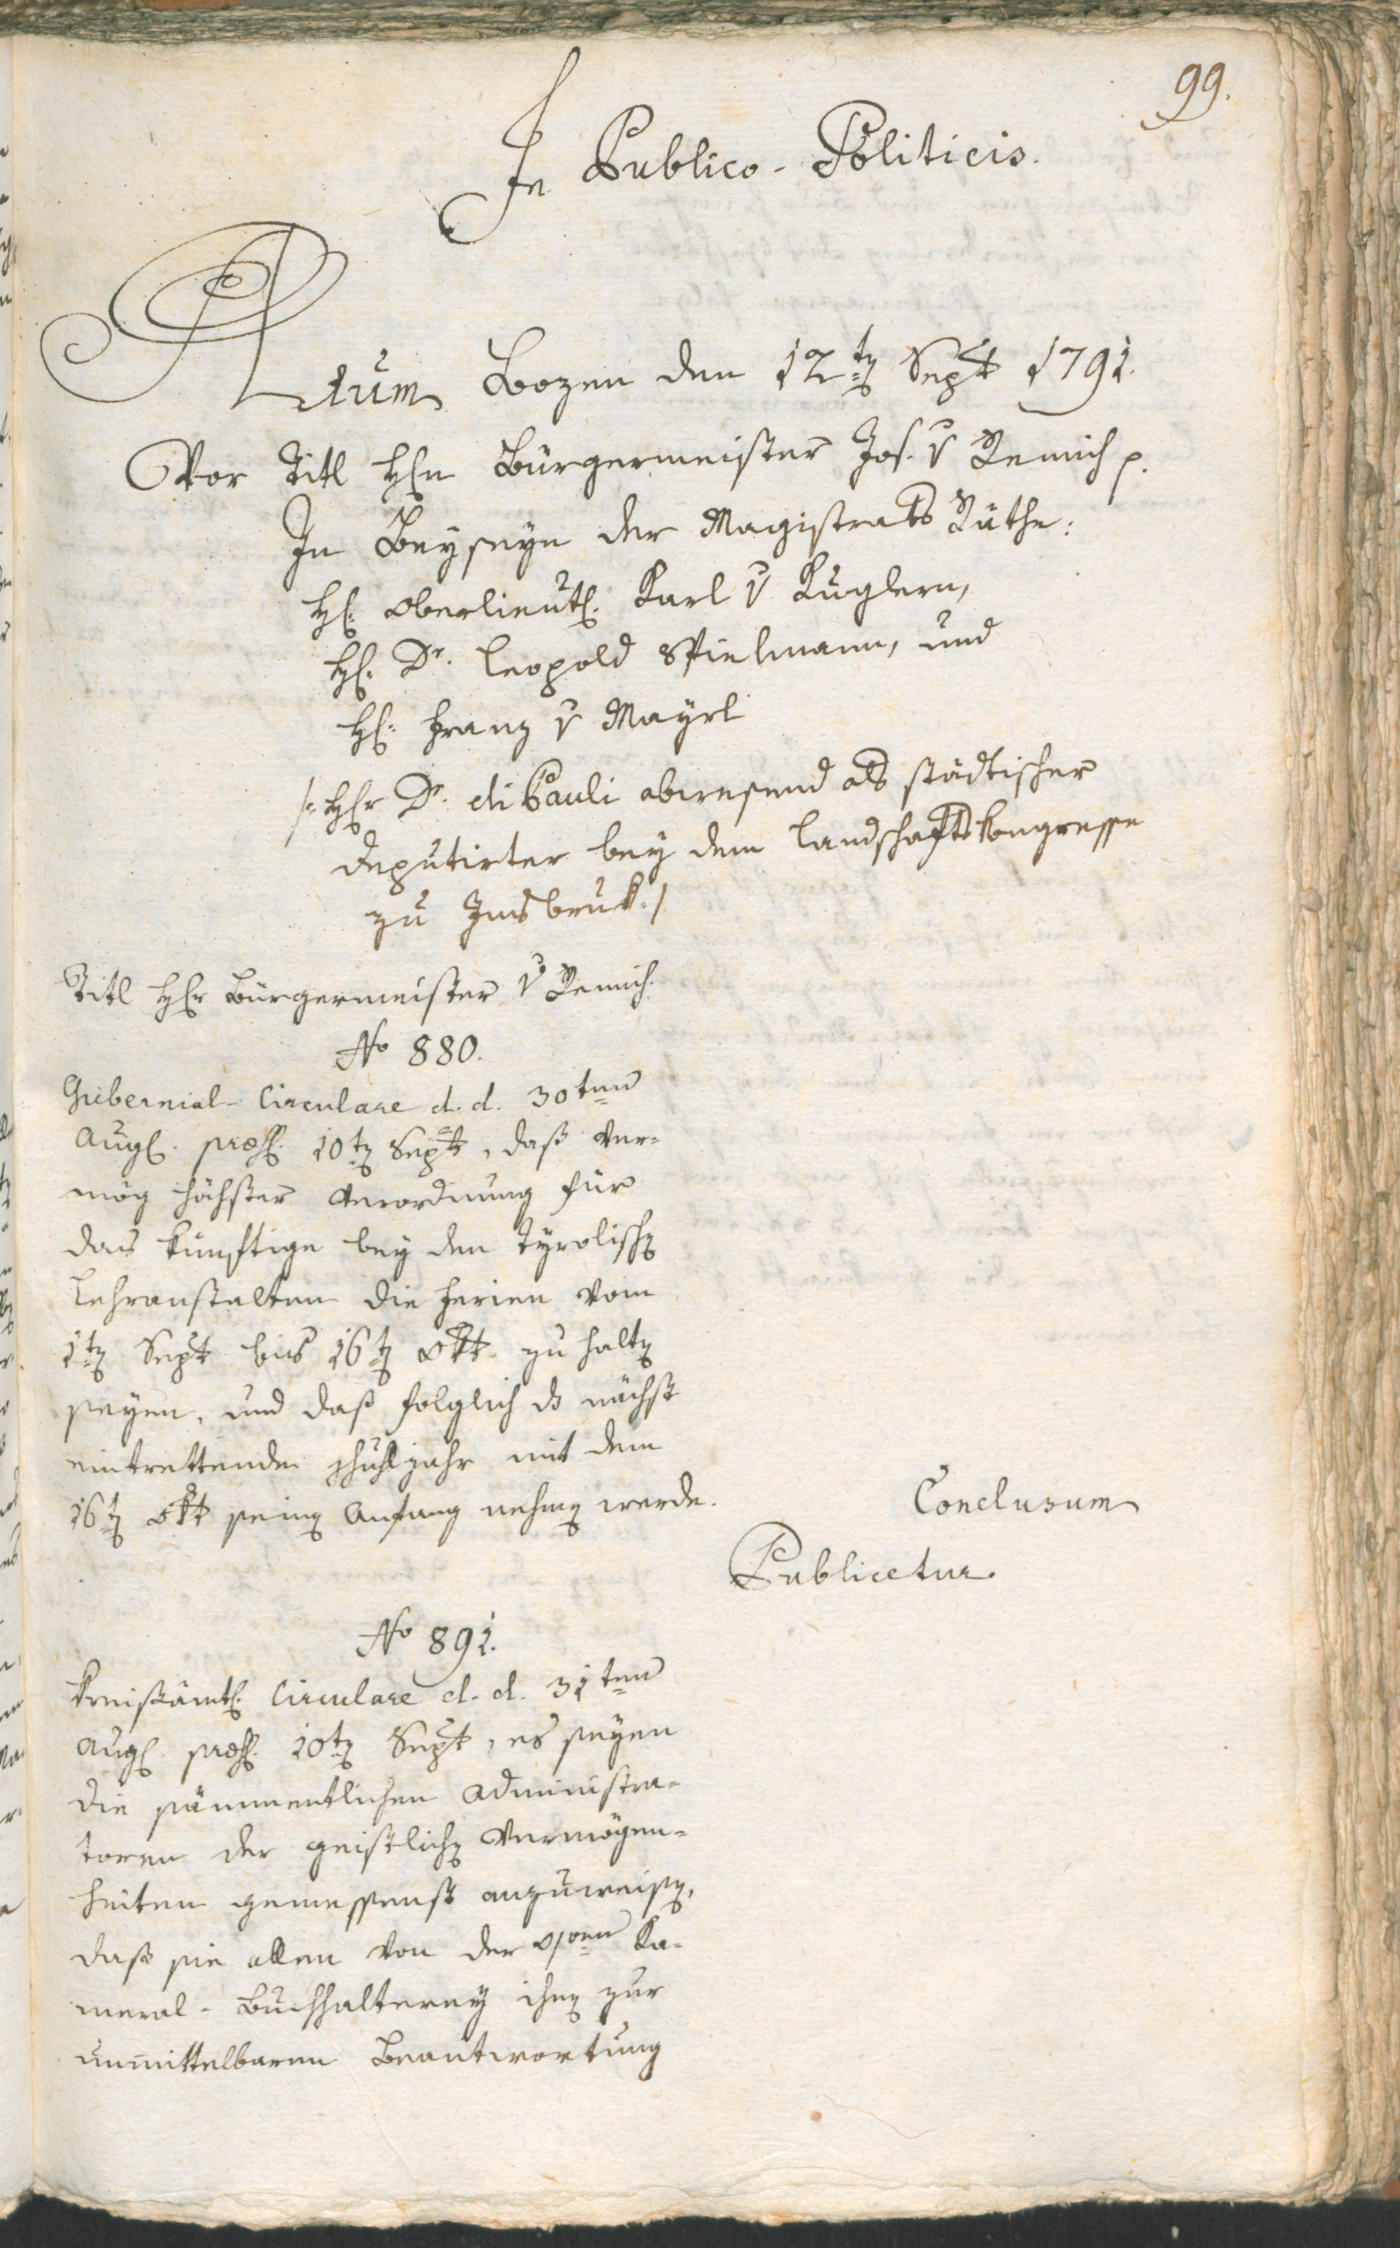 99.
In Publico-Politicis.
Actum Bozen den 12tn Sept 1791.
Vor Titl Hln Bürgermeister Jos. v Remich p.
In Beyseyn der Magistrats Räthe:
Hl. Oberlieut. Karl v Kuglern,
Hl. Dr. Leopold Spielmann, und
Hl. Franz v Mayrl
/: Hlr Dr. di Pauli abwesend als städtischer
Deputirter bey dem Landschafts kongresse
zu Insbruk :/
Titl Hlr Bürgermeister v Remich.
No 880.
Gubernial-Circulare d. d. 30ten
Aug. præs. 10tn Sept, daß ver-
mög höchster Verordnung für
das künftige bey den Tyrolischen
Lehranstalten die Ferien vom
1tn Sept bis 16tn Okt. zu halten
seyen, und daß folglich ds nächst
eintrettende Schuhljahr mit dem
16tn Okt seinen Anfang nehmen werde.
Conclusum
Publicetur.
No 891.
Kreisämtl. Circulare d. d. 31ten
Aug. præs. 10tn Sept, es seyen
die sämmentlichen Administra-
toren der geistlichen Vermögen-
heiten gemessenst anzuweisen,
daß sie allen von der Ka-
meral-Buchhalterey ihnen zur
unmittelbaren Beantwortung